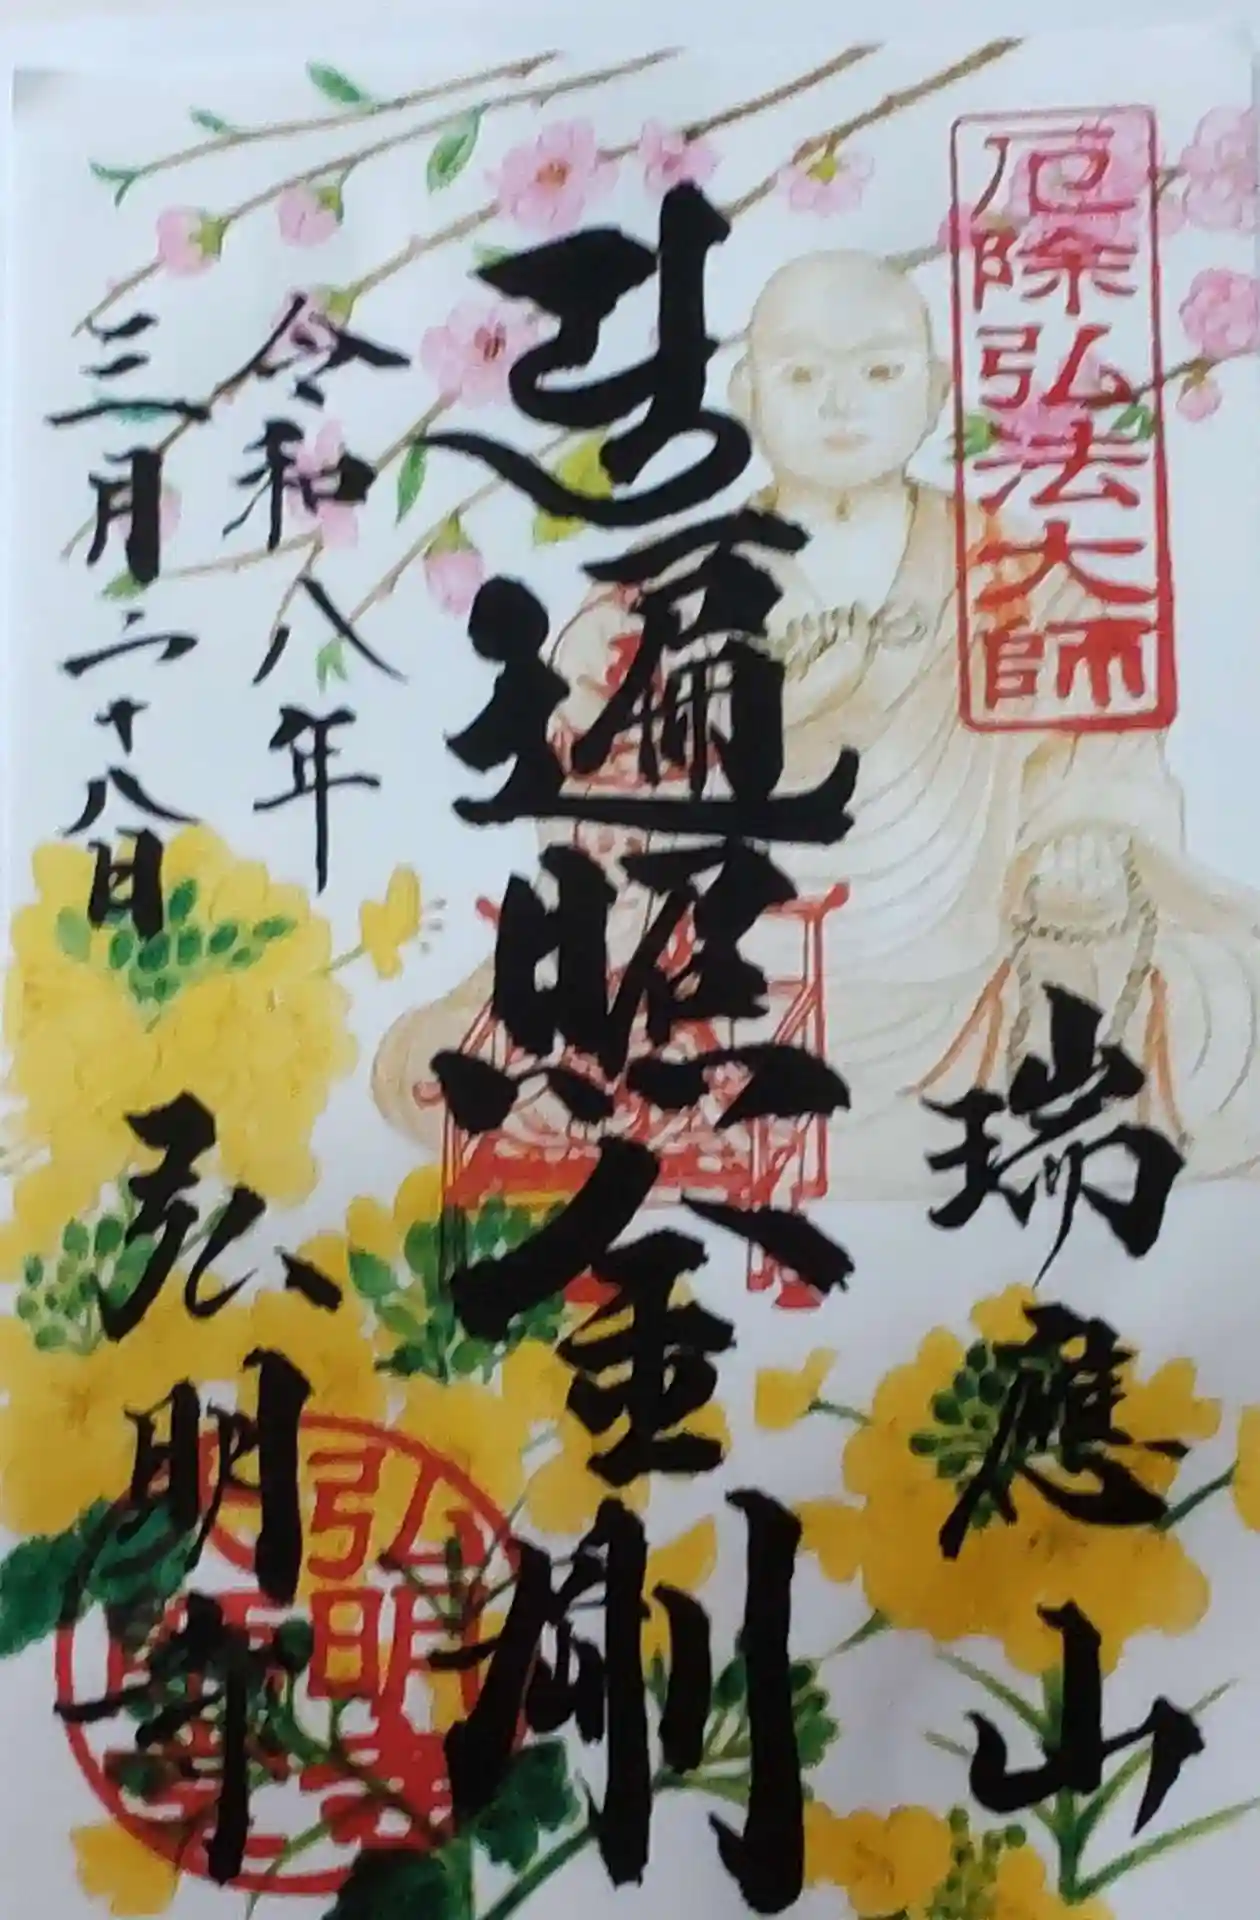 厄除弘法大師
瑞應山
遍照金剛
令和八年
三月二十八日
弘明寺
弘明